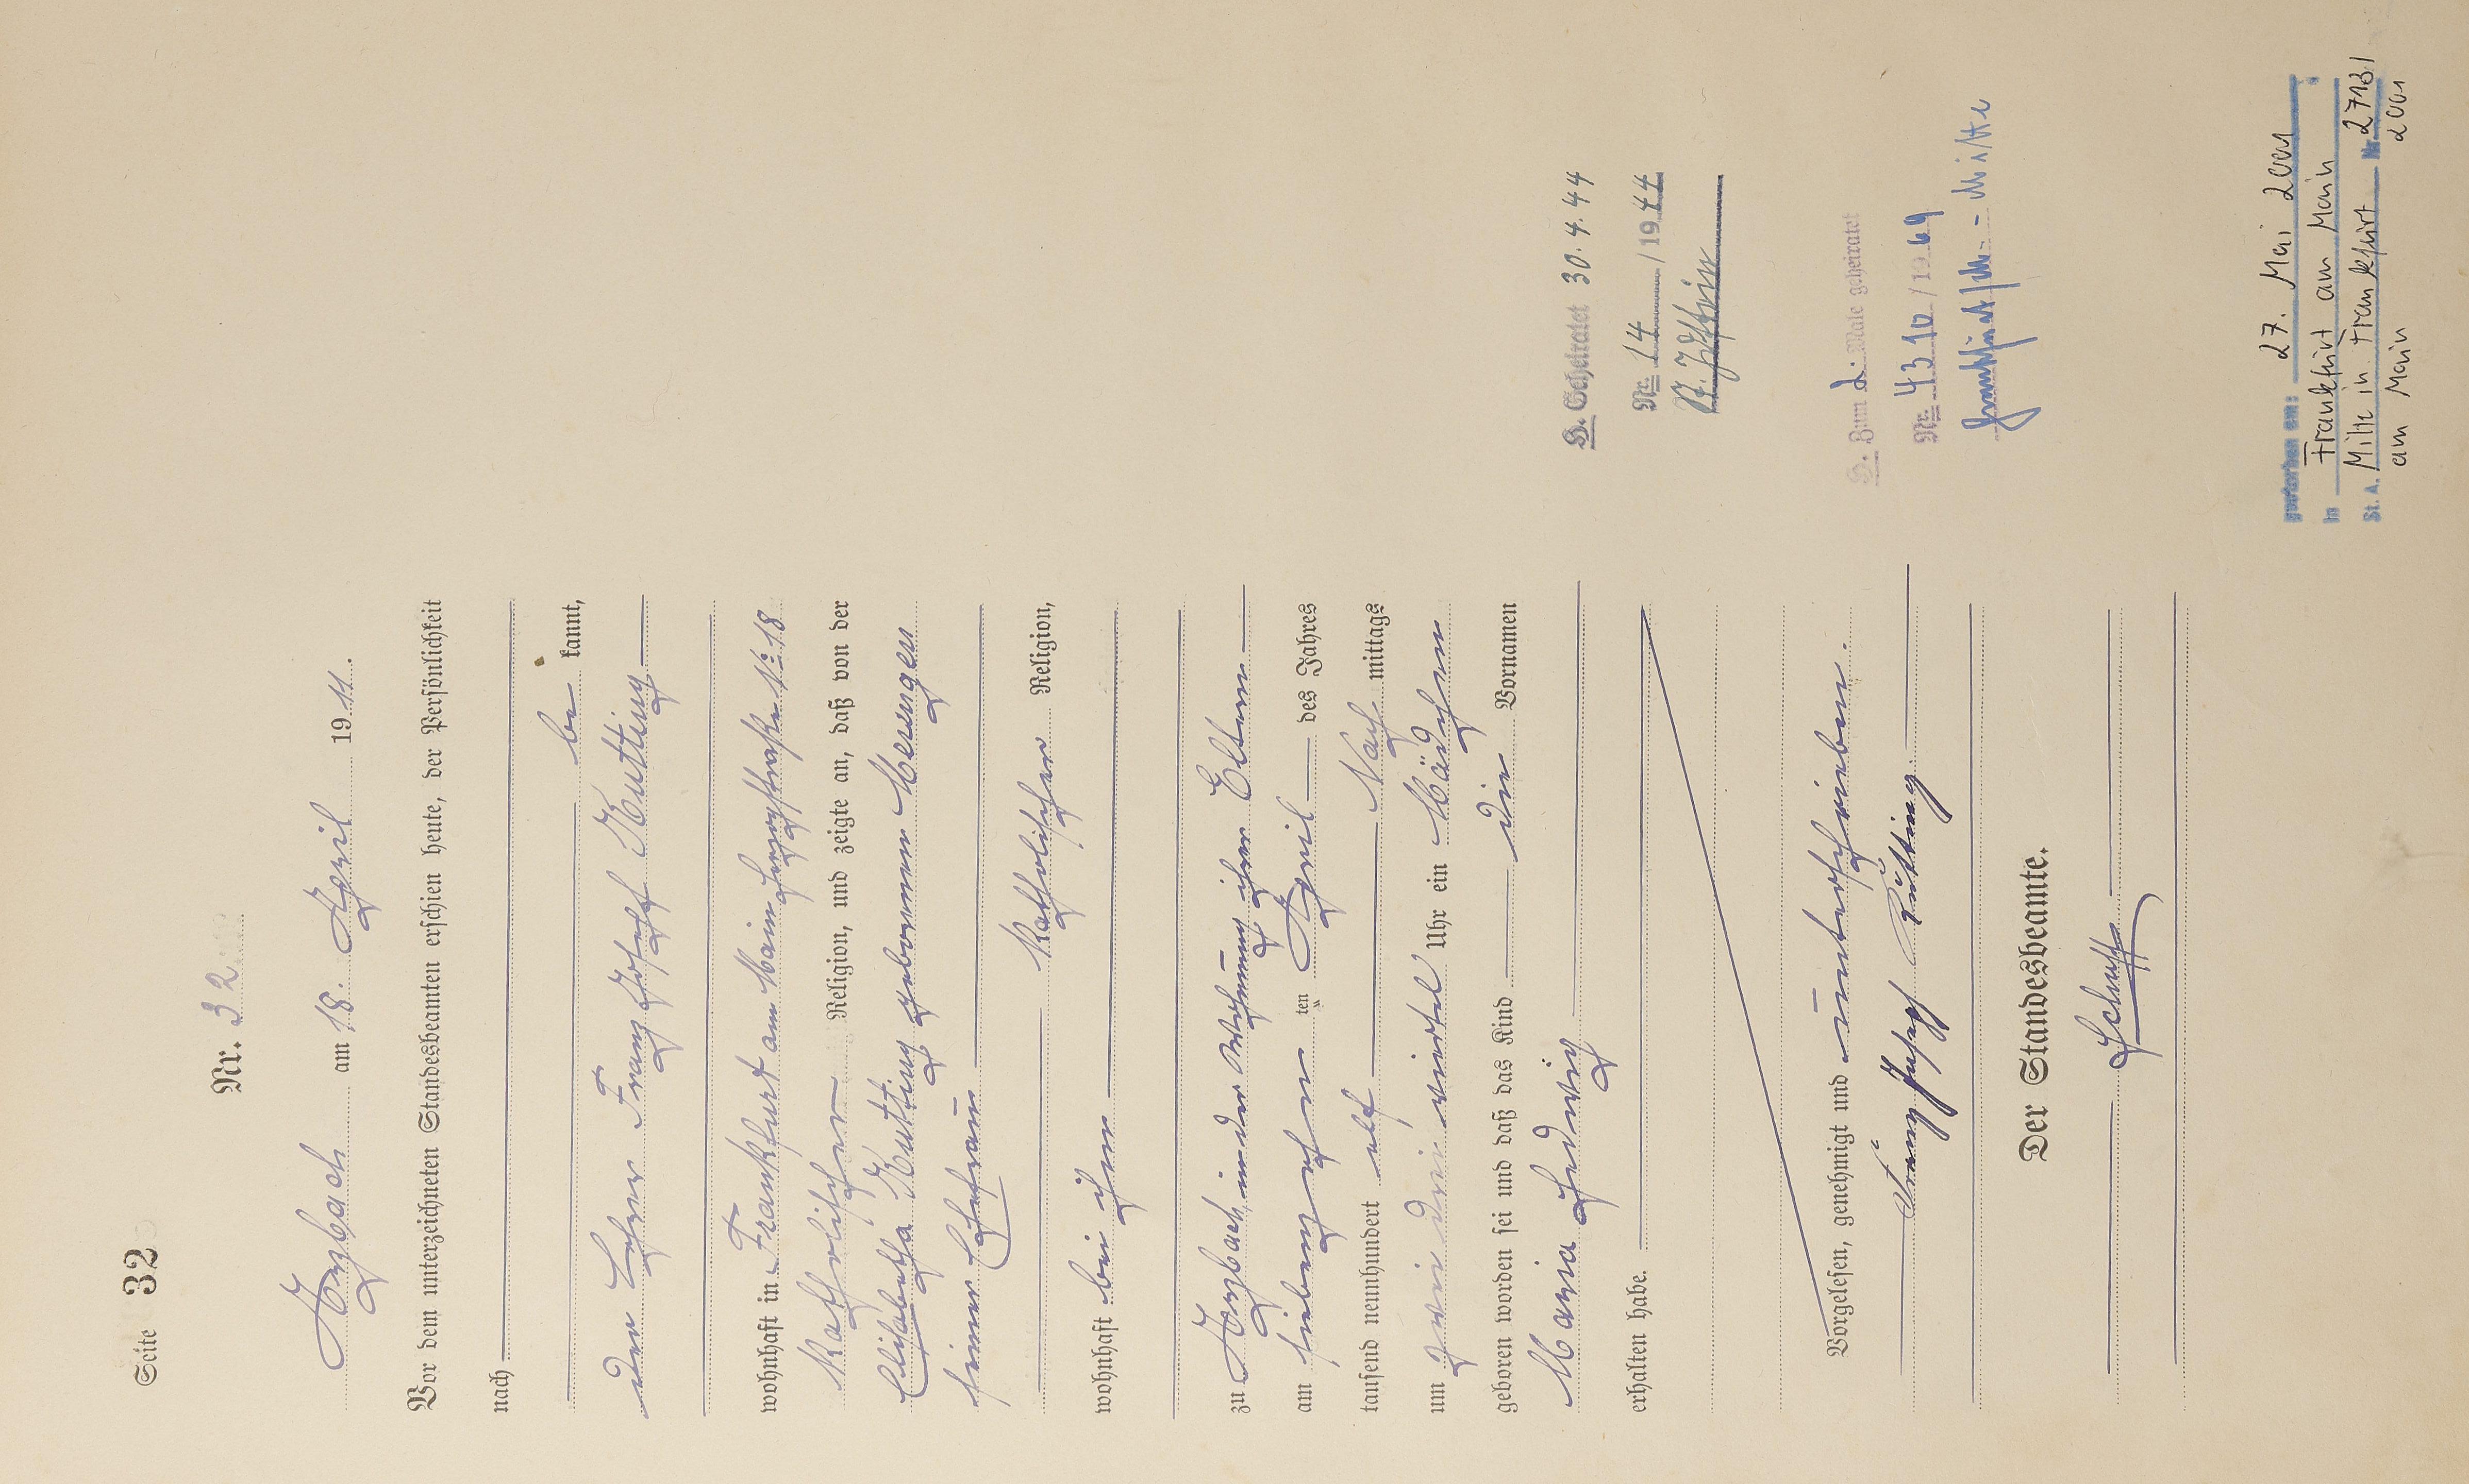 Seite 32
Nr. 32
Arzbach am 18. April 1911.
Vor dem unterzeichneten Standesbeamten erschien heute, der Persönlichkeit
nach
be kannt,
der Lehrer Franz Joseph Kutting
wohnhaft in Frankfurt am Main, Herxstraße No. 18
Katholischer Religion, und zeigte an, daß von der
Elisabetha Kutting geborenen Menges
seiner Ehefrau
Katholischer Religion,
wohnhaft bei ihm
zu Arzbach, in der Wohnung ihrer Eltern
am siebenzehnten April des Jahres
tausend neunhundert elf Nach mittags
um zwei drei viertel Uhr ein Mädchen
geboren worden sei und daß das Kind die Vornamen
Maria Hedwig
erhalten habe.
Vorgelesen, genehmigt und unterschrieben.
Franz Joseph Kutting
Der Standesbeamte.
H. Geheiratet 30.4.44
Nr. 14 / 1944
H. Zum 2. Male geheiratet
Nr. 4310 / 1969
Frankfurt/M. - Mitte
gestorben am: 27. Mai 2001
in Frankfurt am Main
St. A. Mitte in Frankfurt Nr. 2713/
am Main 2001